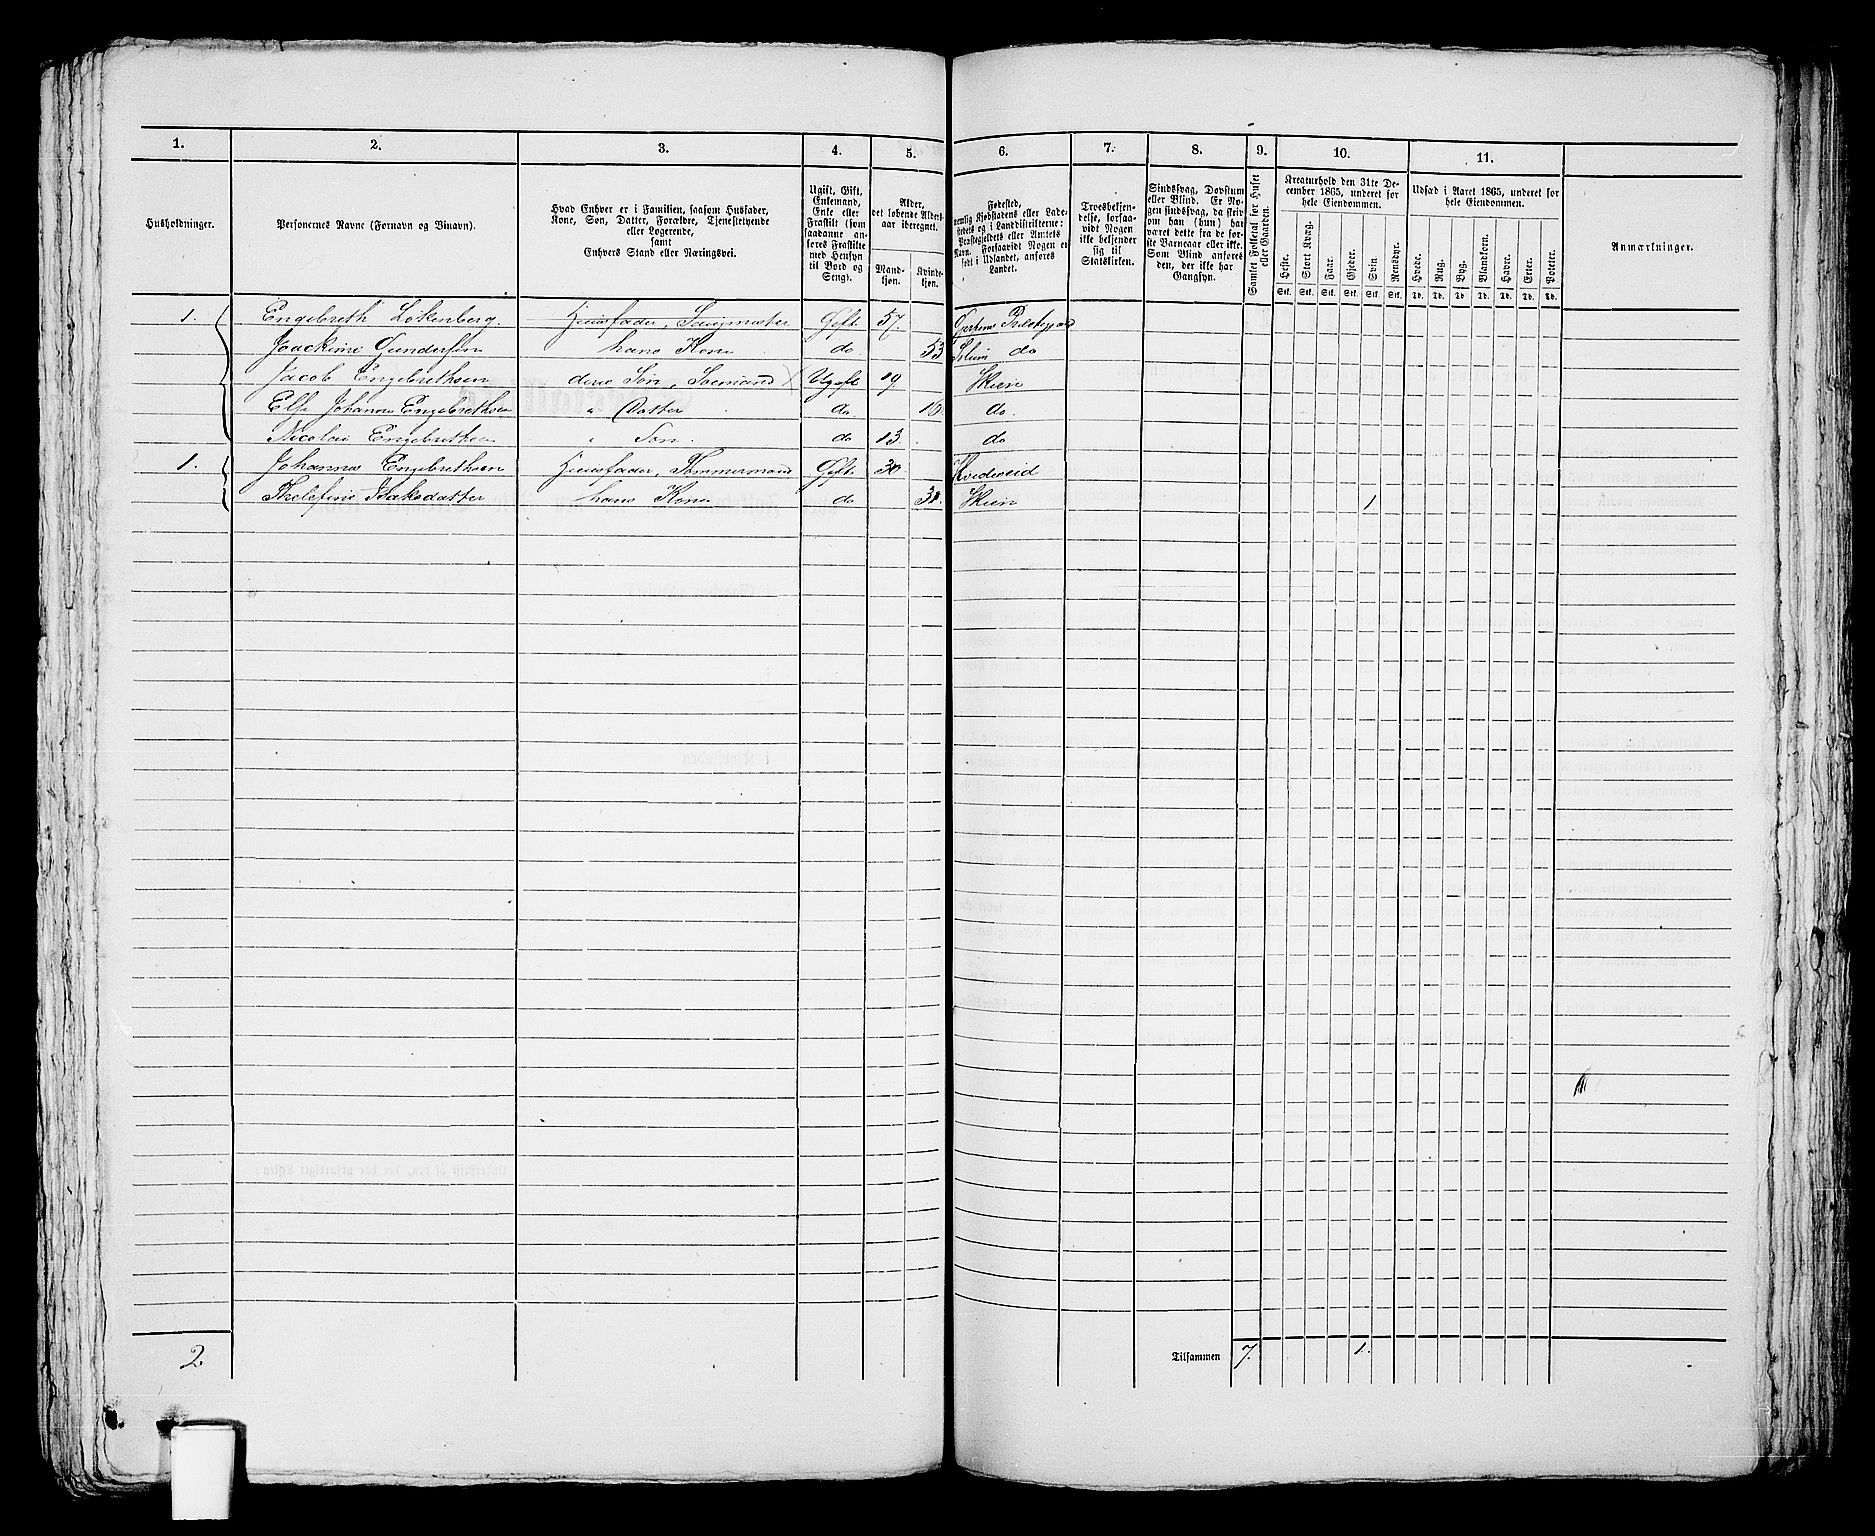 1. 2. 3. 4. 5. 6. 7. 8. 9. 10. 11.
Husholdninger.
Personernes Navne (Fornavn og Binavn).
Hvad Enhver er i Familien, saasom Husfader,
Kone, Søn, Datter, Forældre, Tjenestetyende
eller Logerende,
samt
Enhvers Stand eller Næringsvei.
Ugift, Gift,
Enkemand,
Enke eller
Fraskilt (som
saadanne an-
føres Fraskilte
med Hensyn
til Bord og
Seng).
Alder,
det løbende Alders-
aar iberegnet.
Mand-
kjøn.
Kvinde-
kjøn.
Fødested,
nemlig Kjøbstadens eller Lade-
stedets og i Landdistrikterne:
Præstegjeldets eller Amtets
Navn. Forsaavidt Nogen er
født i Udlandet, anføres
Landet.
Troesbekjen-
delse, forsaa-
vidt Nogen
ikke bekjender
sig til
Statskirken.
Sindssvag, Døvstum
eller Blind. Er No-
gen sindssvag, da skriv
om han (hun) har
været dette fra de før-
ste Barneaar eller ikke.
Som Blind anføres
den, der ikke har
Gangsyn.
Samlet Folketal for Huset
eller Gaarden.
Kreaturhold den 31te De-
cember 1865, underet for
hele Eiendommen.
Heste. Stort Kvæg. Faar. Gjeder. Svin Rensdyr.
Stk. Stk. Stk. Stk. Stk. Stk.
Udsæd i Aaret 1865, underet for
hele Eiendommen.
Hvede. Rug. Byg. Blandkorn. Havre. Erter. Poteter.
Td. Td. Td Td. Td. Td. Td.
Anmærkninger.
1. Engebreth Løkenberg. Huusfader, Saugmester Gift 57. Gjerpens Præstegjæld
Joachime Gundersen hans Kone do 53 Slum do
Jacob Engebrethsen deres Søn, Sømand Ugift 19 Skien
Else Johanne Engebrethsen " Datter do 16 do.
Nicolai Engebrethsen " Søn. do 13. do
1. Johannes Engebrethsen Huusfader, Tømmermand Gift 30 Hvideseid
Isaksdatter hans Kone do Skien 1
2. Tilsammen 7. 1.